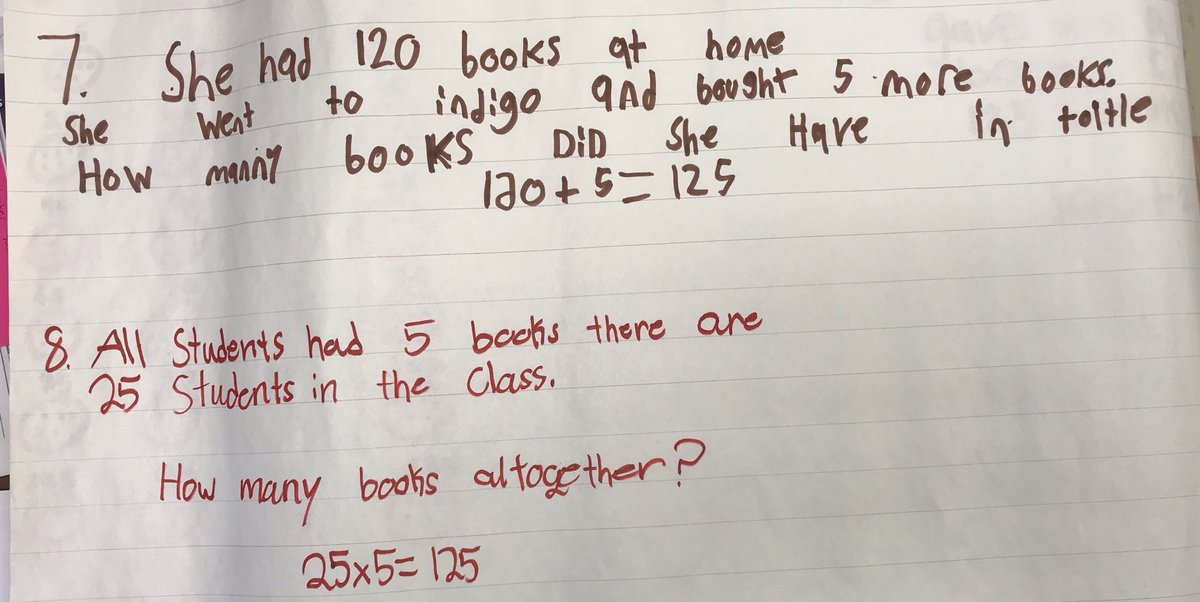 7. She had 120 books at home
She went to indigo and bought 5 more books.
How manny books DiD She Have in toltle
120 + 5 = 125
8. All Students had 5 books there are
25 Students in the Class.
How many books altogether?
25x5= 125